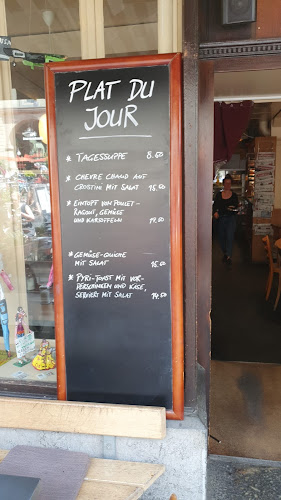 PLAT DU
JOUR
* TAGESSUPPE 8.50
* CHEVRE CHAUD AUF
CROSTINI MIT SALAT 15.50
* EINTOPF VON POULET-
RAGOUT, GEMÜSE
UND KARTOFFELN 17.50
* GEMÜSE-QUICHE
MIT SALAT 15.50
* PYRI-TOAST MIT VOR-
DERSCHINKEN UND KÄSE,
SERVIERT MIT SALAT 14.50